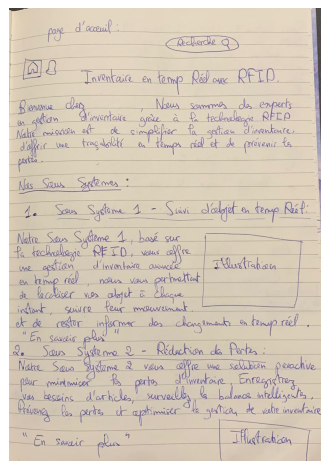 page d'accueil :
Recherche
Inventaire en temp Réel avec RFID.
Bienvenue chez , Nous sommes des experts
en gestion d'inventaire grâce à la technologie RFID
Notre mission est de simplifier la gestion d'inventaire,
d'offrir une traçabilité en temps réel et de prévenir les
pertes.
Nos Sous Systèmes :
1. Sous Système 1 - Suivi d'objet en temp Réel :
Notre Sous Système 1, basé sur
la technologie RFID, vous offre
une gestion d'inventaire avancée
en temp réel, nous vous permettant
de localiser vos objet à chaque
instant, suivre leur mouvement,
et de rester informer des changements en temp réel.
Illustration
"En savoir plus"
2. Sous Système 2 - Réduction de Pertes :
Notre Sous Système 2 vous offre une solution proactive
pour minimiser les pertes d'inventaire Enregistrez
vos besoins d'articles, surveillez la balance intelligente,
Prévenez les pertes et optimiser la gestion de votre inventaire
"En savoir plus"
Illustration